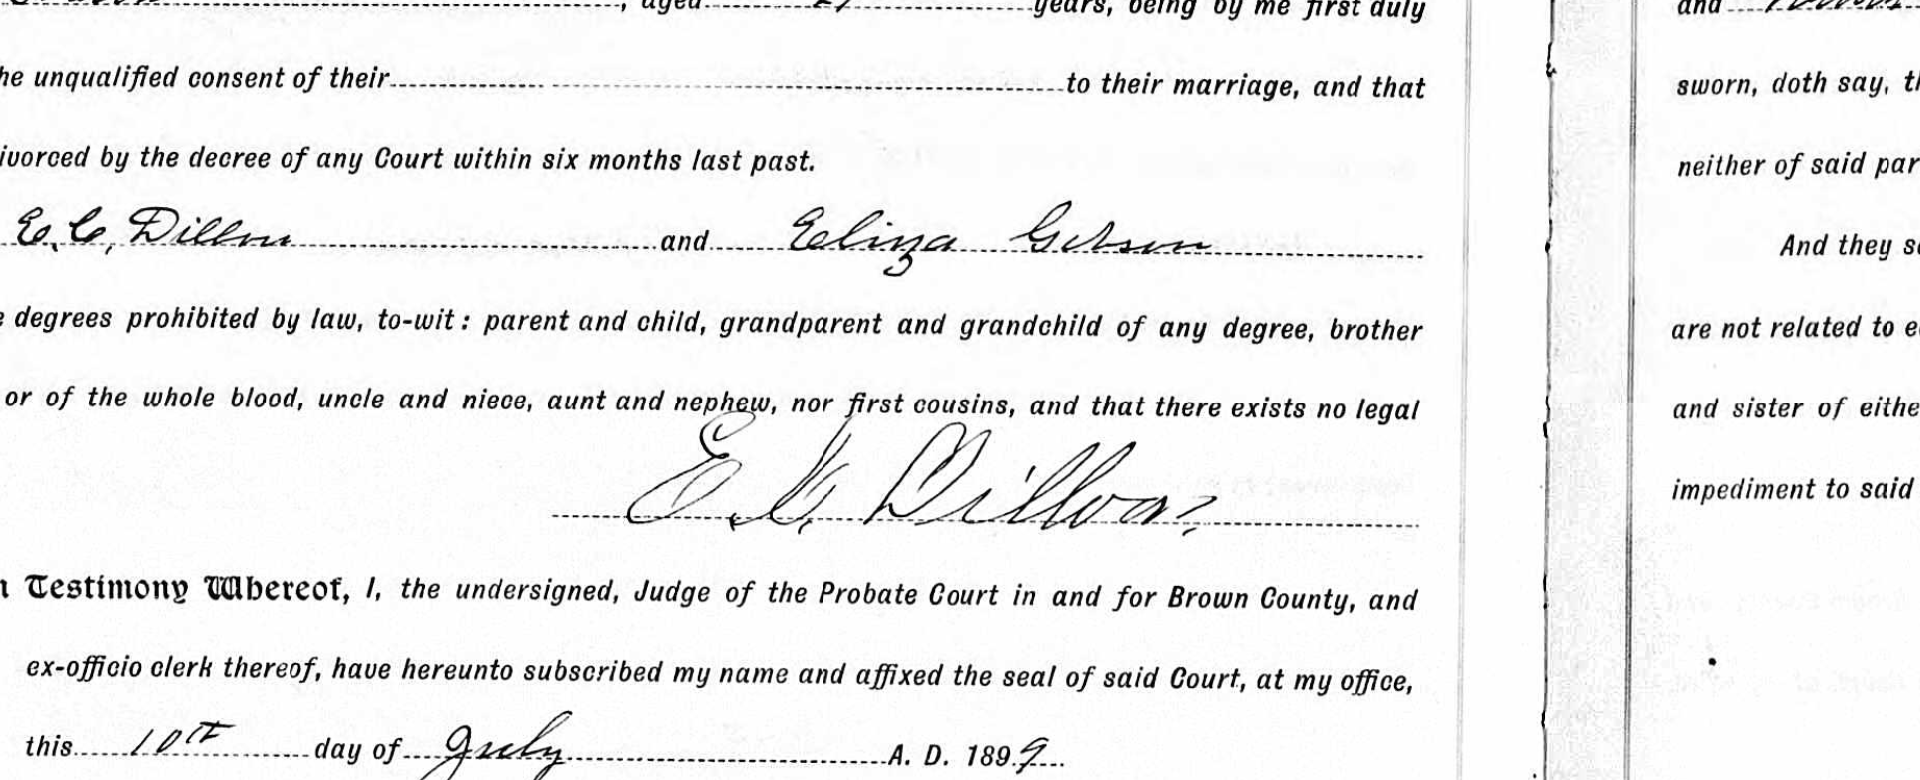 , aged 27 years, being by me first duly
he unqualified consent of their to their marriage, and that
ivorced by the decree of any Court within six months last past.
E. C. Dillon and Eliza Gibson
e degrees prohibited by law, to-wit: parent and child, grandparent and grandchild of any degree, brother
or of the whole blood, uncle and niece, aunt and nephew, nor first cousins, and that there exists no legal
E. C. Dillon
n Testimony Whereof, I, the undersigned, Judge of the Probate Court in and for Brown County, and
ex-officio clerk thereof, have hereunto subscribed my name and affixed the seal of said Court, at my office,
this 10th day of July A. D. 1899
and
sworn, doth say, th
neither of said par
And they so
are not related to ea
and sister of eithe
impediment to said